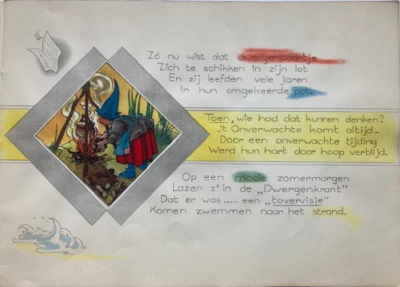 Zó nu wist dat dwergenpaartje
Zich te schikken in zijn lot
En zij leefden vele jaren
In hun omgekeerde pot.
Toen, wie had dat kunnen denken?
't Onverwachte komt altijd..
Door een onverwachte tijding
Werd hun hart door hoop verblijd.
Op een mooie zomermorgen
Lazen z' in de „Dwergenkrant"
Dat er was ..... een „tovervisje"
Komen zwemmen naar het strand.